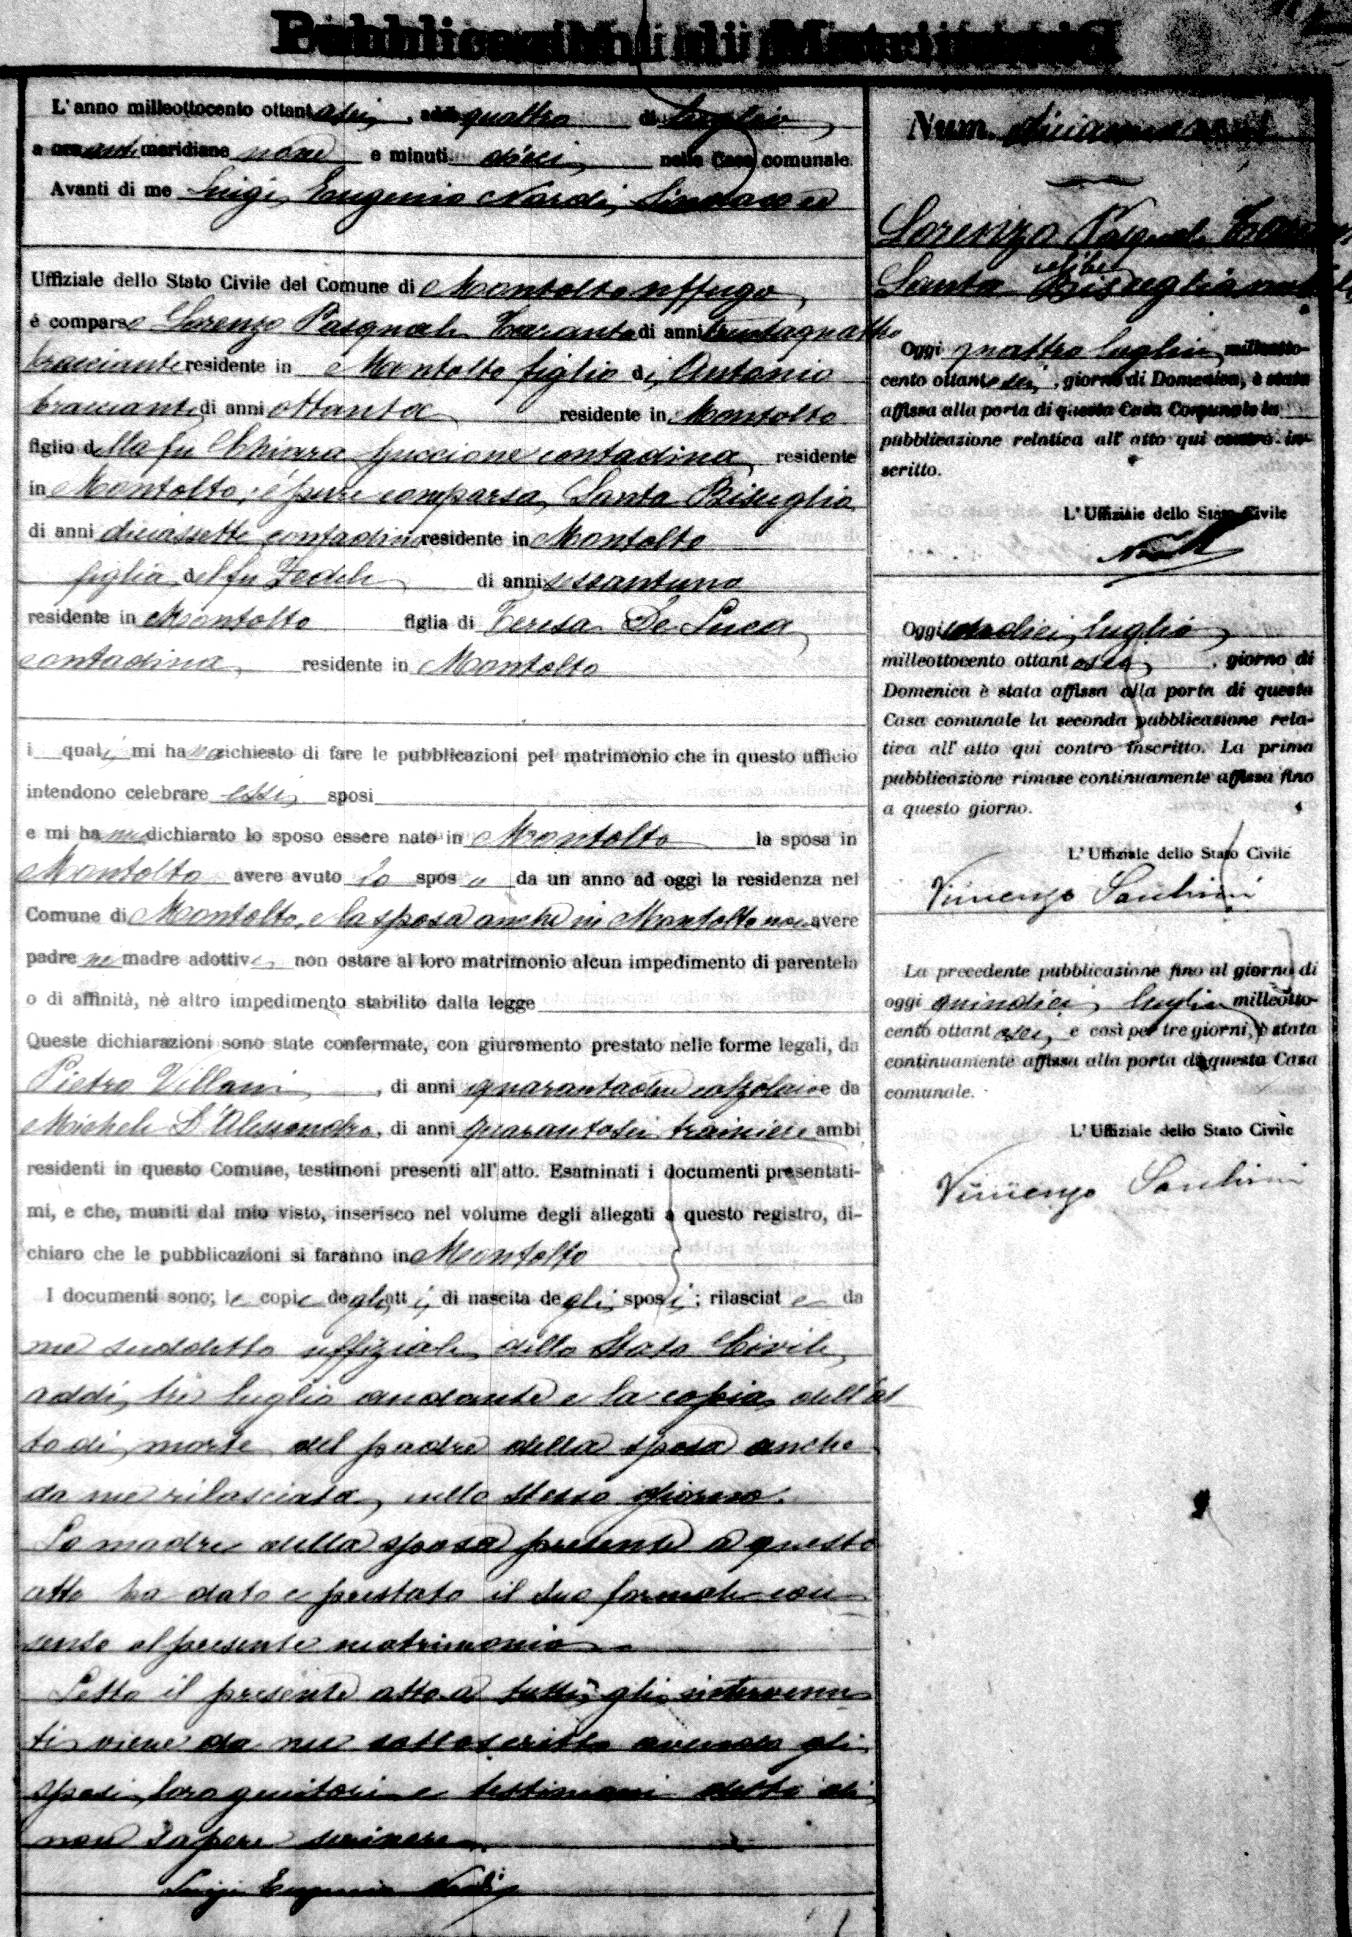 Pubblicazioni di Matrimonio
L'anno milleottocento ottantasei, addì quattro di luglio
a ore antimeridiane nove e minuti dieci, nella Casa comunale.
Avanti di me Luigi Eugenio Nardi, Sindaco ed
Uffiziale dello Stato Civile del Comune di Montalto Uffugo,
è comparso Lorenzo Pasquale Taranto di anni trentaquattro
bracciante residente in Montalto figlio di Antonio
bracciante di anni ottanta residente in Montalto
figlio della fu Chiara Guccione contadina, residente
in Montalto; è pure comparsa, Santa Bisuglia
di anni diciassette contadina residente in Montalto
figlia del fu Fedele di anni sessantuno
residente in Montalto figlia di Teresa De Luca
contadina, residente in Montalto
i quali mi hanno richiesto di fare le pubblicazioni pel matrimonio che in questo ufficio
intendono celebrare essi sposi
e mi hanno dichiarato lo sposo essere nato in Montalto la sposa in
Montalto avere avuto lo sposo da un anno ad oggi la residenza nel
Comune di Montalto, e la sposa anche in Montalto non avere
padre nè madre adottivi, non ostare al loro matrimonio alcun impedimento di parentela
o di affinità, nè altro impedimento stabilito dalla legge
Queste dichiarazioni sono state confermate, con giuramento prestato nelle forme legali, da
Pietro Villani, di anni calzolaio e da
Michele D'Alessandro, di anni quarantasei trainiere ambi
residenti in questo Comune, testimoni presenti all'atto. Esaminati i documenti presentati-
mi, e che, muniti dal mio visto, inserisco nel volume degli allegati a questo registro, di-
chiaro che le pubblicazioni si faranno in Montalto
I documenti sono; le copie degli atti di nascita degli sposi; rilasciate da
me suddetto uffiziale dello Stato Civile,
addì tre luglio andante e la copia dell'at
to di morte del padre della sposa anche
da me rilasciata, nello stesso giorno.
La madre della sposa presente a questo
atto ha dato e prestato il suo formale con
senso al presente matrimonio.
Letto il presente atto a tutti gli intervenu
ti viene da me sottoscritto avendo gli
sposi, loro genitori e testimoni detto di
non sapere scrivere.
Luigi Eugenio Nardi
Num.
Lorenzo Pasquale Taranto
Santa Bisuglia
Oggi quattro luglio milleotto-
cento ottantasei, giorno di Domenica, è stata
affissa alla porta di questa Casa Comunale la
pubblicazione relativa all'atto qui contro in-
scritto.
L'Uffiziale dello Stato Civile
Nardi
Oggi undici luglio
milleottocento ottantasei, giorno di
Domenica è stata affissa alla porta di questa
Casa comunale la seconda pubblicazione rela-
tiva all'atto qui contro inscritto. La prima
pubblicazione rimase continuamente affissa fino
a questo giorno.
L'Uffiziale dello Stato Civile
Vincenzo
La precedente pubblicazione fino al giorno di
oggi quindici luglio milleotto-
cento ottantasei, e così per tre giorni, è stata
continuamente affissa alla porta di questa Casa
comunale.
L'Uffiziale dello Stato Civile
Vincenzo